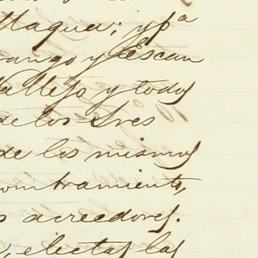 Magua; y pª
rango y Escan
Vallejo y todos
de los Sres
de los mismos
nombramiento,
s acreedores.
, electas las